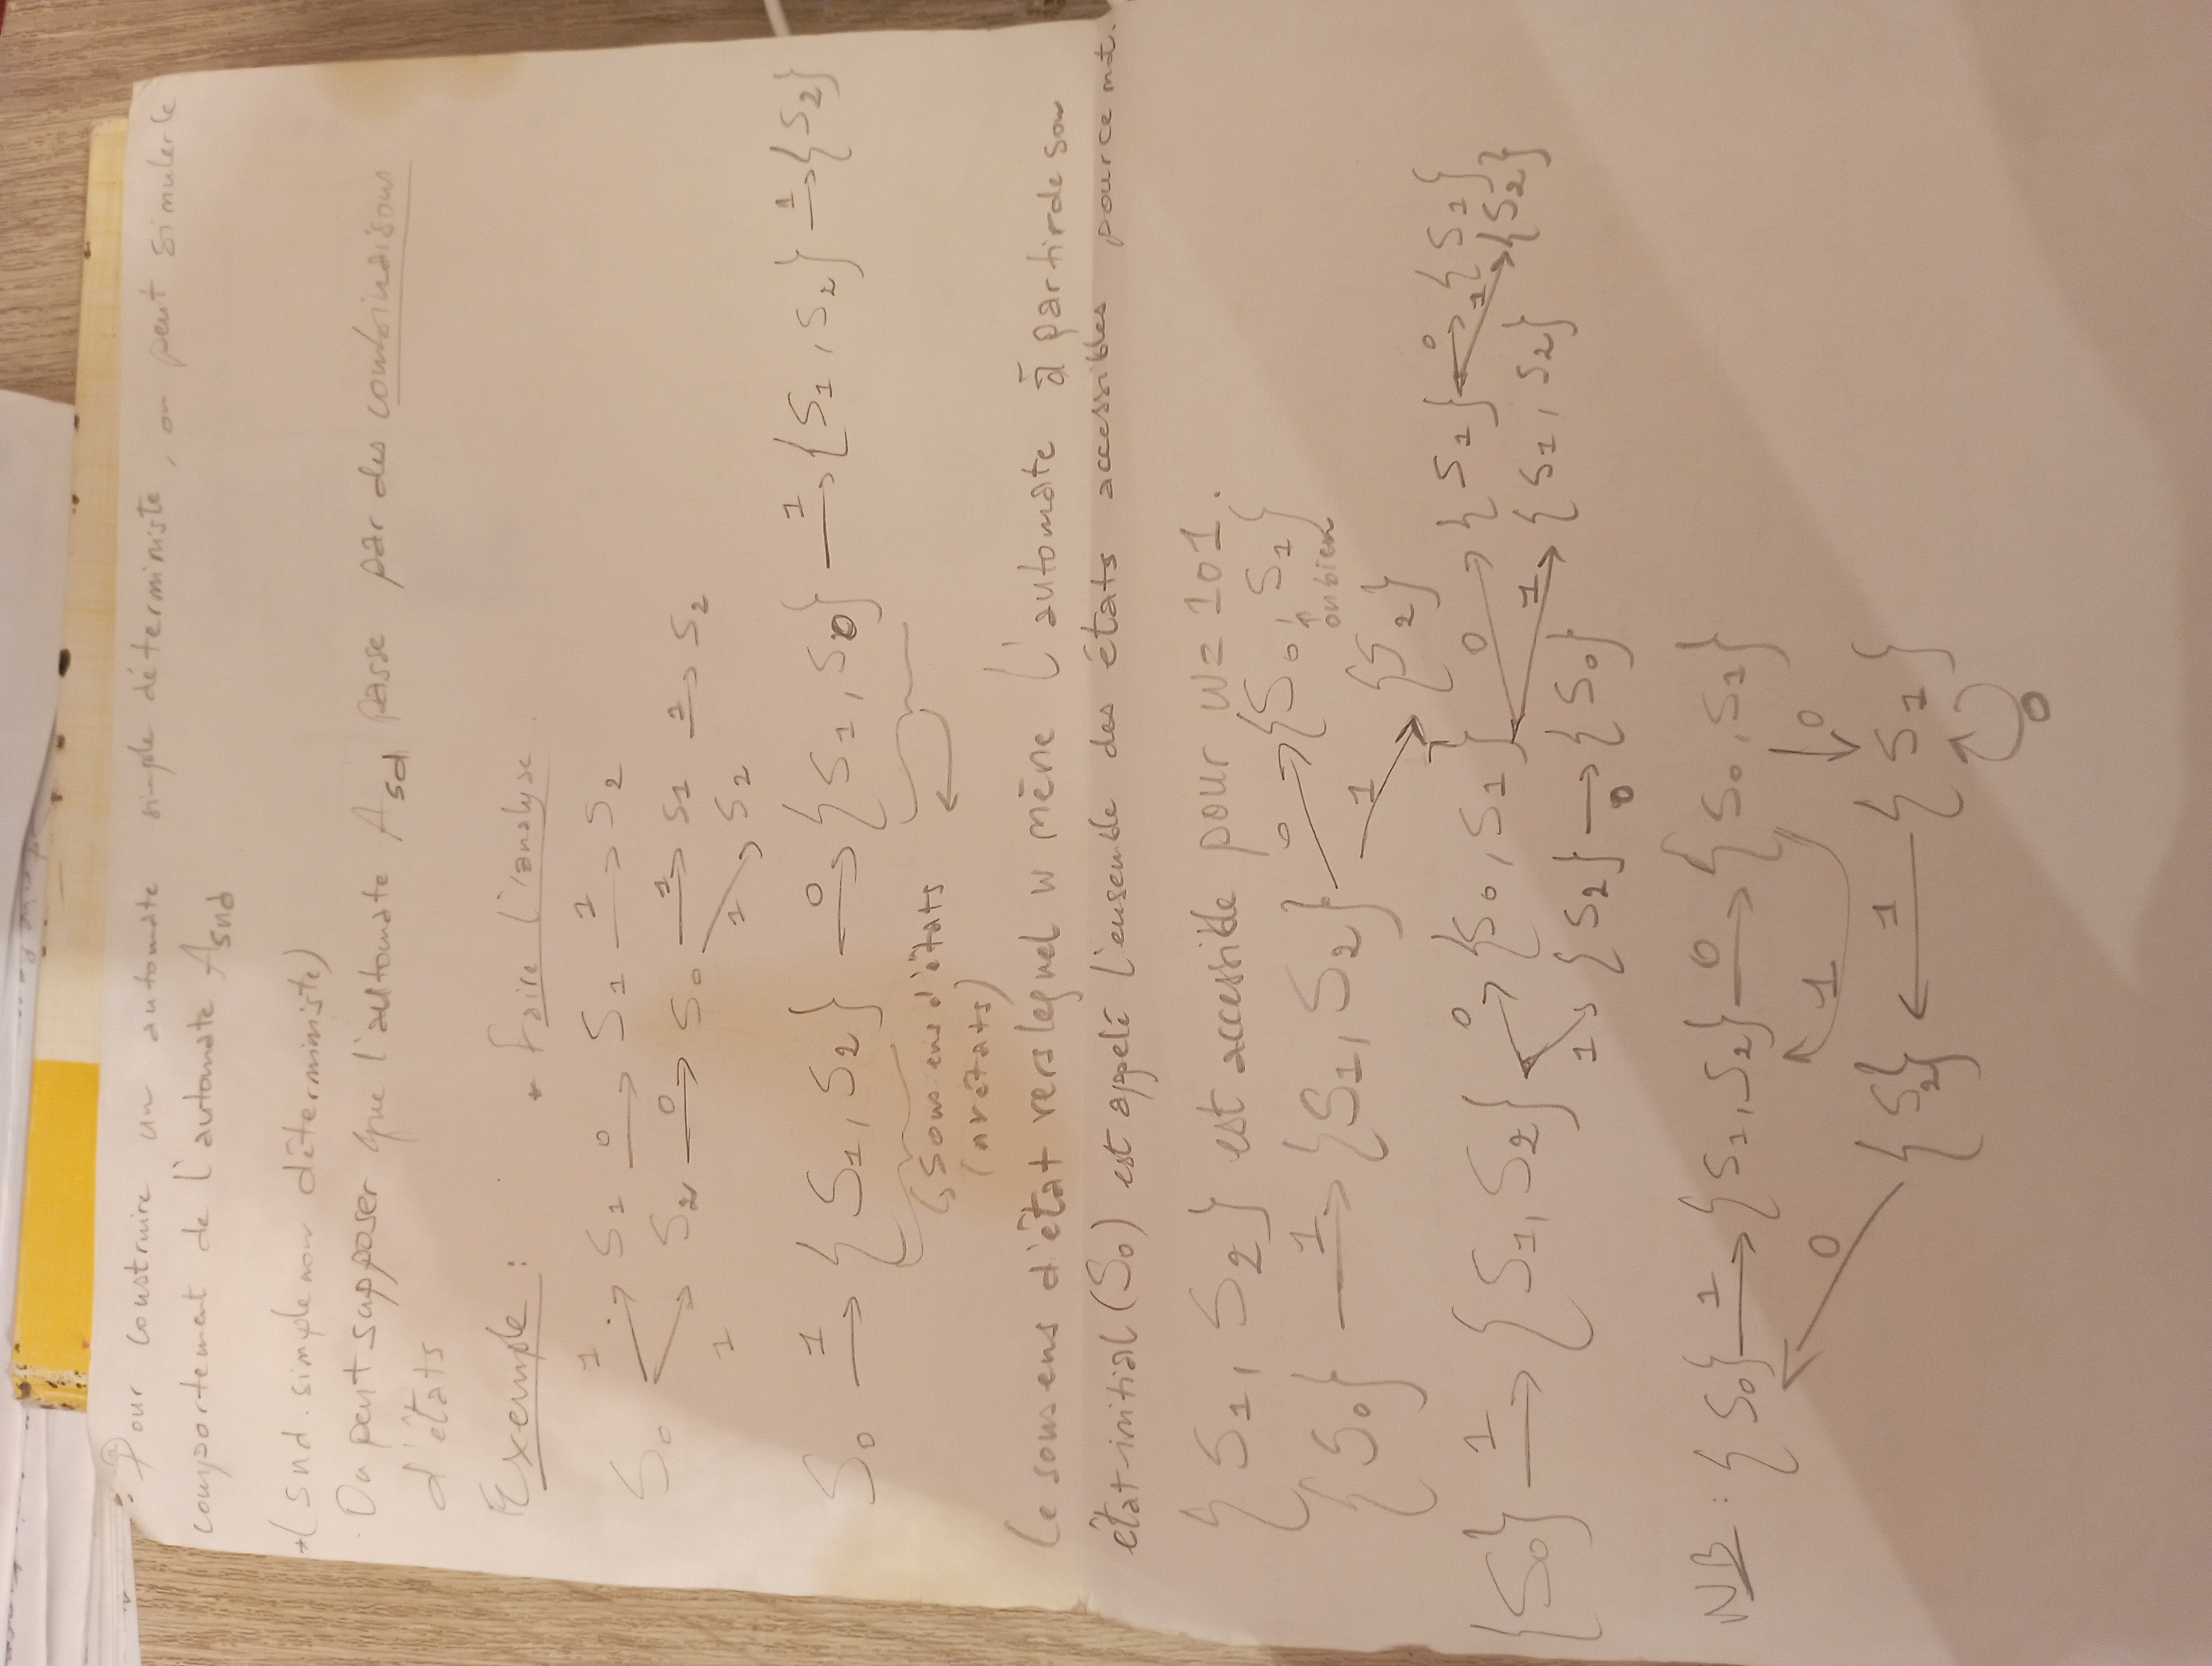 Pour construire un automate simple déterministe, on peut simuler le
comportement de l'automate Asnd
*(snd : simple non déterministe)
On peut supposer que l'automate Asd passe par des combinaisons
d'êtats
Exemple : * Faire l'analyse
1 S1 0 → S1 1 → S2
S0
S2 0 → S0 1 → S1 1 → S2
1 1 S2
S0 1 → {S1, S2} 0 → {S1, S0} 1 → {S1, S2} 1 → {S2}
↳ Sous ens d'êtats
Le sous ens d'êtat vers lequel w mène l'automate à partir de son
êtat initial (S0) est appelé l'ensemble des états accessibles pour ce mot.
{S1, S2} est accessible pour w = 101.
{S0} 1 → {S1, S2} 0 → {S0, S1}
ou bien
1 → {S2}
{S0} 1 → {S1, S2} 0 → {S0, S1} 0 → {S1} 0 → {S1}
1 → {S2}
1 → {S1, S2}
1 → {S2} → 0 {S0}
NB : {S0} 1 → {S1, S2} 0 → {S0, S1}
0 1 0
{S2} ← 1 {S1}
0